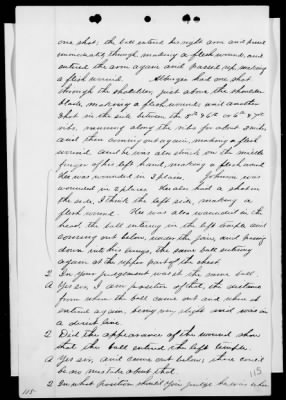 one shot, the ball entered his right arm and passed
immediately through making a flesh wound, and
entered the arm again and passed up, making
a flesh wound. had one shot
through the shoulder, just above the shoulder
blade, making a flesh wound, and another
shot in the side between the 5th & 6th or 6th & 7th
ribs, running along the ribs for about
and then coming out again, making a flesh
wound, and he was also struck on the middle
finger of his left hand, making a flesh wound
He was wounded in 3 places. Johnson was
wounded in 2 places. He also had a shot in
the side, I think the left side, making a
flesh wound. He was also wounded in the
head, the ball entering in the left temple and
coming out below, under the jaw, and passing
down into his lungs, the same ball entering
again at the upper part of the chest
Q In your judgement was it the same ball.
A Yes sir, I am positive of that, the distance
from where the ball came out and where it
entered again, being very slight and was in
a direct line.
Q Did the appearance of the wound show
that the ball entered the left temple.
A Yes sir, and came out below; there could
be no mistake about that.
Q In what position should you judge he was when
115
115